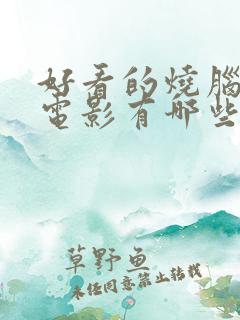 好看的燒腦
電影有哪些
草野鱼
未经同意禁止转载